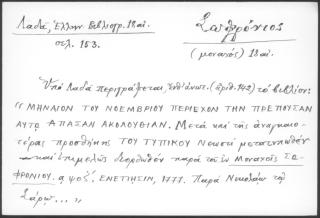 Λαδᾶ, Ἑλλην. Βιβλιογρ. 18 αἰ.
σελ. 153.
Σωφρόνιος
(μοναχός) 18 αἰ.
Ὑπὸ Λαδᾶ περιγράφεται, ἔνθ' ἀνωτ. (ἀριθ. 142) τὸ βιβλίον:
"ΜΗΝΑΙΟΝ ΤΟΥ ΝΟΕΜΒΡΙΟΥ ΠΕΡΙΕΧΟΝ ΤΗΝ ΠΡΕΠΟΥΣΑΝ
ΑΥΤῼ ΑΠΑΣΑΝ ΑΚΟΛΟΥΘΙΑΝ. Μετὰ καὶ τῆς ἀναγκαιο-
τέρας προσθήκης ΤΟΥ ΤΥΠΙΚΟΥ Νεωστὶ μετατυπωθὲν
καὶ ἐπιμελῶς διορθωθὲν παρὰ τοῦ ἐν Μοναχοῖς ΣΩ-
ΦΡΟΝΙΟΥ. αψοζ΄. ΕΝΕΤΙΗΣΙΝ, 1777. Παρὰ Νικολάῳ τῷ
Σάρῳ..."